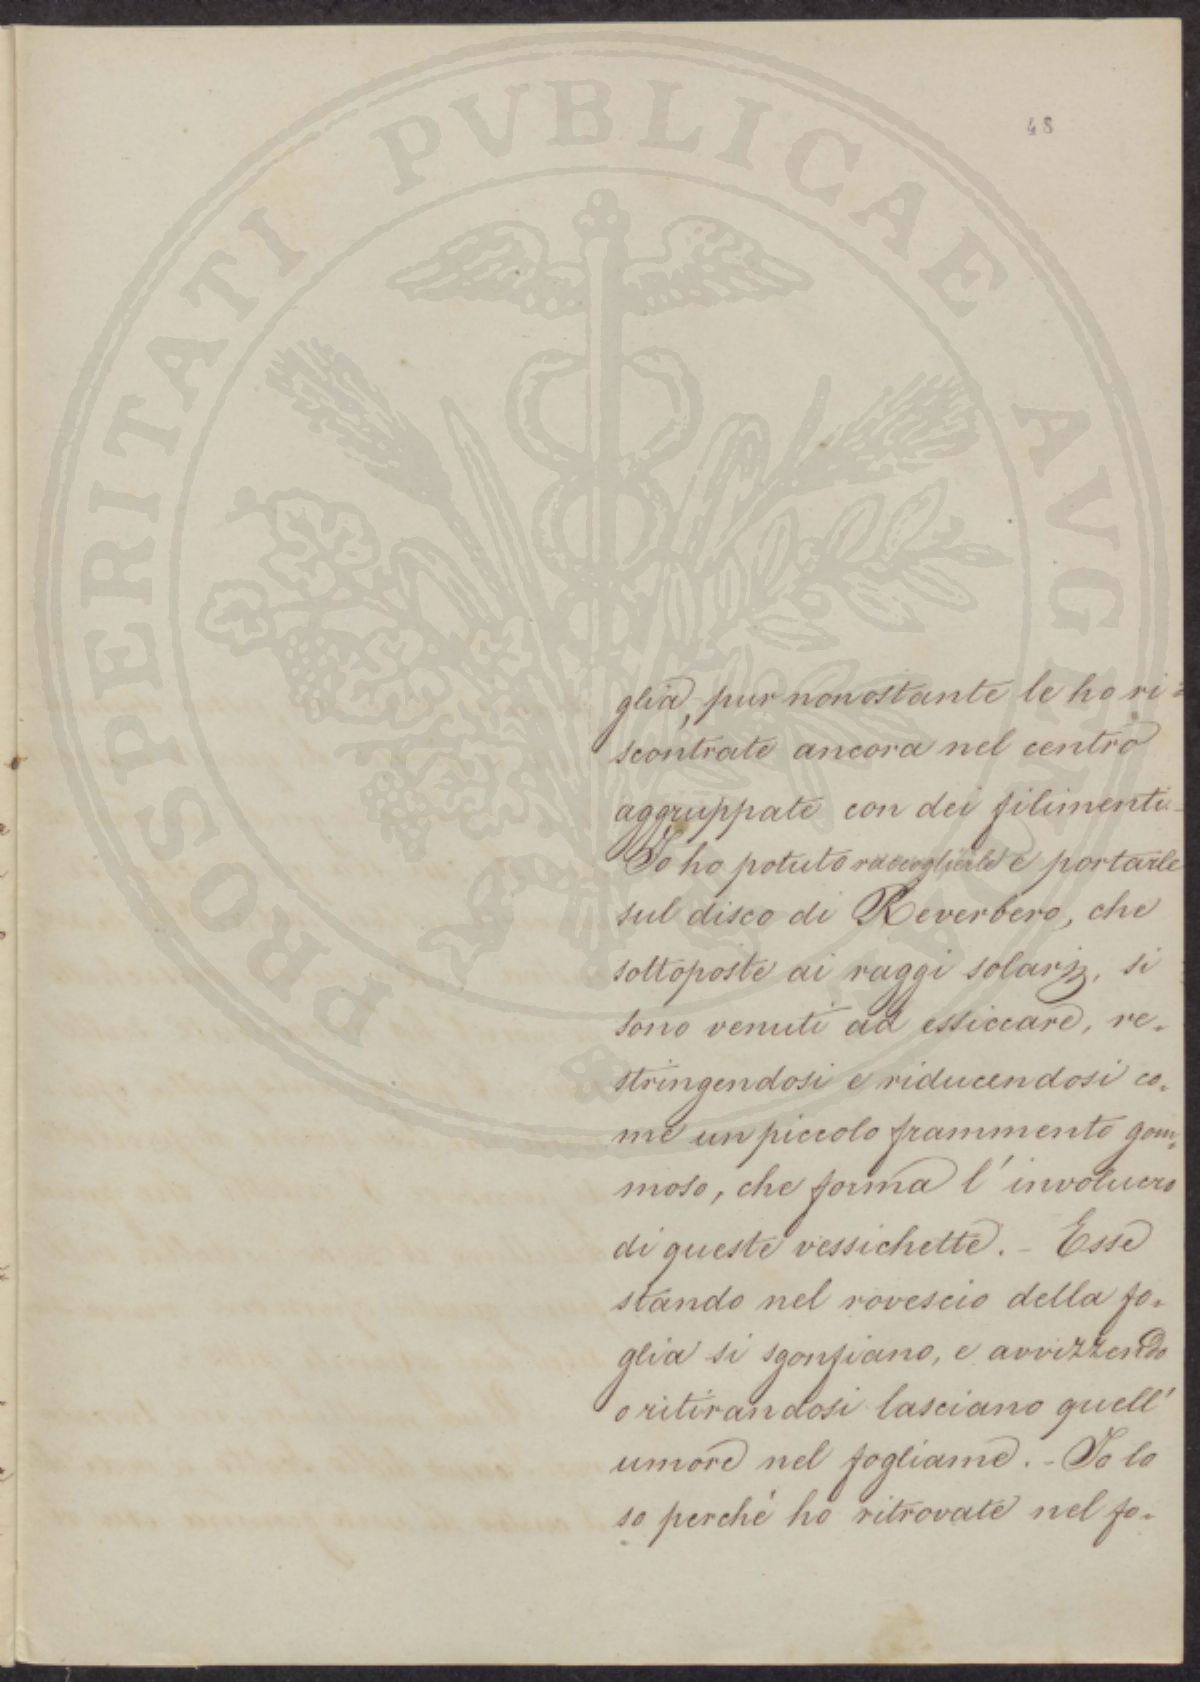 48
PROSPERITATI PVBLICAE AVGENDAE
glia, pur nonostante le ho ri=
scontrate ancora nel centro
aggruppate con dei filimenti.
Io ho potuto raccoglierle e portarle
sul disco di Reverbero, che
sottoposte ai raggi solarj, si
sono venuti ad essiccare, re-
stringendosi e riducendosi co-
me un piccolo frammento gom-
moso, che forma l'involucro
di queste vessichette. - Esse
stando nel rovescio della fo-
glia si sgonfiano, e avvizzendo
o ritirandosi lasciano quell'
umore nel fogliame. - Io lo
so perché ho ritrovate nel fo-